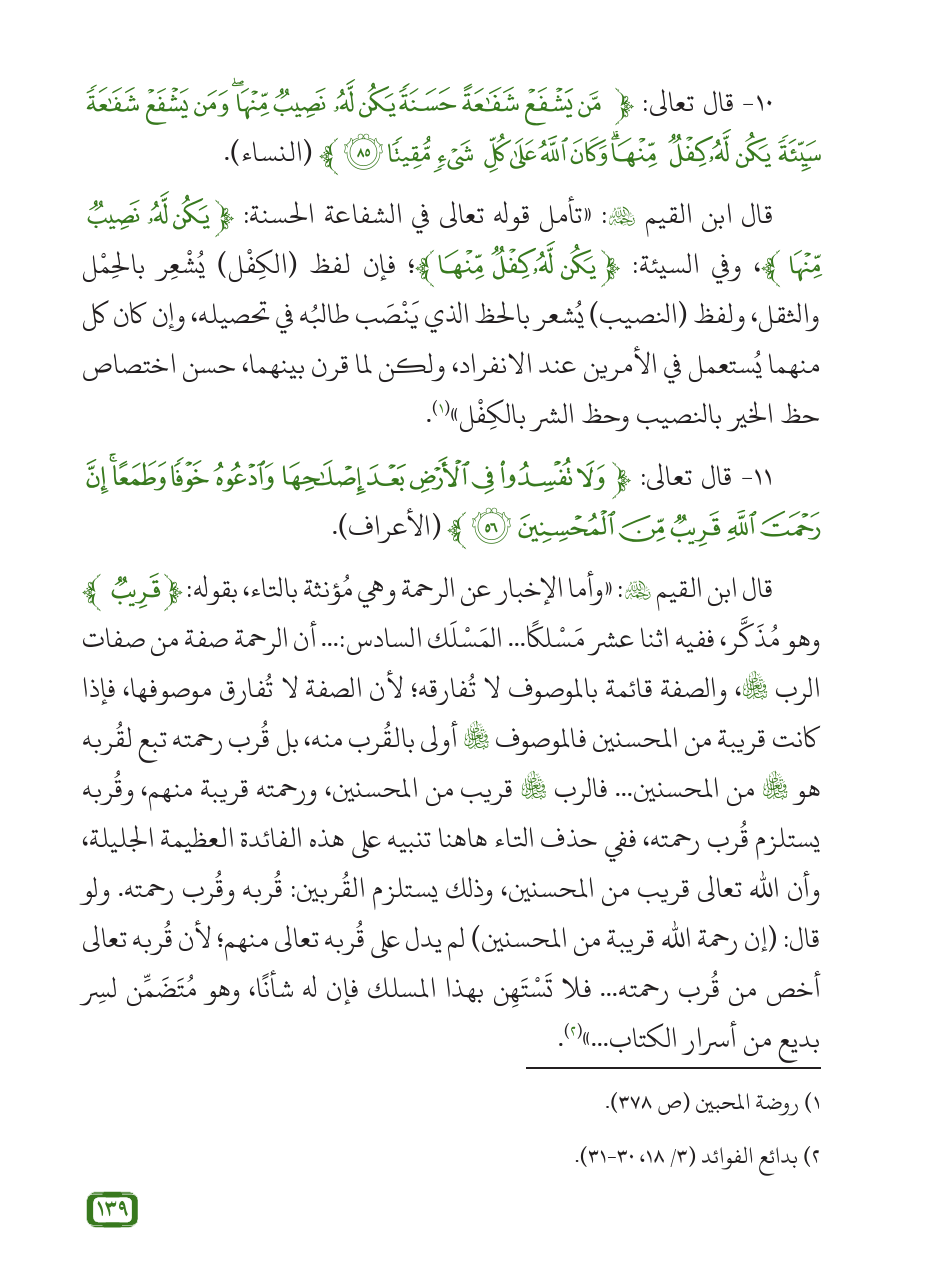 ١٠- قال تعالى: ﴿ مَّن يَشْفَعْ شَفَٰعَةً حَسَنَةً يَكُن لَّهُۥ نَصِيبٌ مِّنْهَا ۖ وَمَن يَشْفَعْ شَفَٰعَةً
سَيِّئَةً يَكُن لَّهُۥ كِفْلٌ مِّنْهَا ۗ وَكَانَ ٱللَّهُ عَلَىٰ كُلِّ شَىْءٍ مُّقِيتًا ٨٥ ﴾ (النساء).
قال ابن القيم ﵀: «تأمل قوله تعالى في الشفاعة الحسنة: ﴿ يَكُن لَّهُۥ نَصِيبٌ
مِّنْهَا ﴾، وفي السيئة: ﴿ يَكُن لَّهُۥ كِفْلٌ مِّنْهَا ﴾؛ فإن لفظ (الكِفْل) يُشْعِر بالحِمْل
والثقل، ولفظ (النصيب) يُشعر بالحظ الذي يَنْصَب طالبُه في تحصيله، وإن كان كل
منهما يُستعمل في الأمرين عند الانفراد، ولكن لما قرن بينهما، حسن اختصاص
حظ الخير بالنصيب وحظ الشر بالكِفْل»(١).
١١- قال تعالى: ﴿ وَلَا تُفْسِدُوا۟ فِى ٱلْأَرْضِ بَعْدَ إِصْلَٰحِهَا وَٱدْعُوهُ خَوْفًا وَطَمَعًا ۚ إِنَّ
رَحْمَتَ ٱللَّهِ قَرِيبٌ مِّنَ ٱلْمُحْسِنِينَ ٥٦ ﴾ (الأعراف).
قال ابن القيم ﵀: «وأما الإخبار عن الرحمة وهي مُؤنثة بالتاء، بقوله: ﴿ قَرِيبٌ ﴾
وهو مُذَكَّر، ففيه اثنا عشر مَسْلكًا... المَسْلَك السادس:... أن الرحمة صفة من صفات
الرب ﵎، والصفة قائمة بالموصوف لا تُفارقه؛ لأن الصفة لا تُفارق موصوفها، فإذا
كانت قريبة من المحسنين فالموصوف ﵎ أولى بالقُرب منه، بل قُرب رحمته تبع لقُربه
هو ﵎ من المحسنين... فالرب ﵎ قريب من المحسنين، ورحمته قريبة منهم، وقُربه
يستلزم قُرب رحمته، ففي حذف التاء هاهنا تنبيه على هذه الفائدة العظيمة الجليلة،
وأن الله تعالى قريب من المحسنين، وذلك يستلزم القُربين: قُربه وقُرب رحمته. ولو
قال: (إن رحمة الله قريبة من المحسنين) لم يدل على قُربه تعالى منهم؛ لأن قُربه تعالى
أخص من قُرب رحمته... فلا تَسْتَهِن بهذا المسلك فإن له شأنًا، وهو مُتَضَمِّن لسِر
بديع من أسرار الكتاب...»(٢).
١) روضة المحبين (ص ٣٧٨).
٢) بدائع الفوائد (٣/ ١٨، ٣٠-٣١).
١٣٩